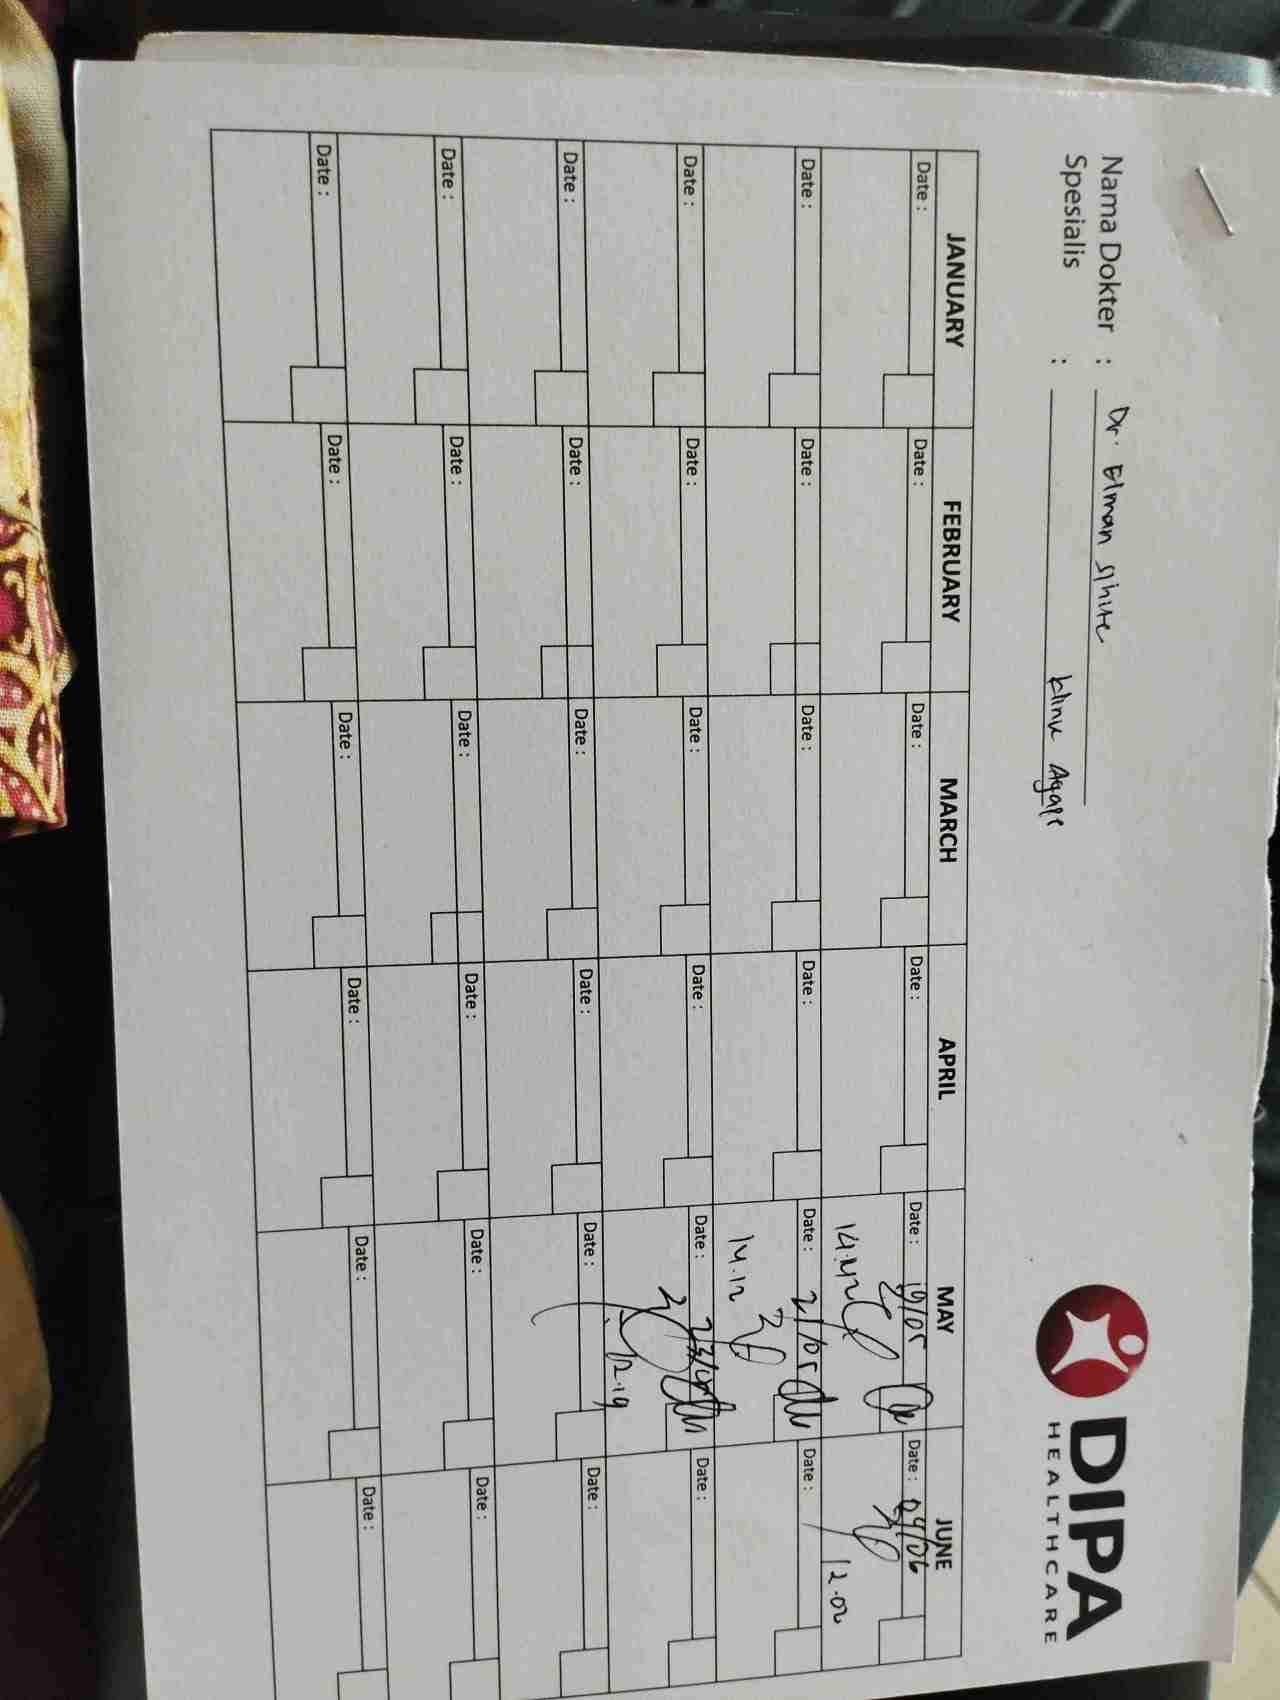 DIPA
HEALTHCARE
Nama Dokter : Dr. Elman
Spesialis : Klinik Agape
JANUARY FEBRUARY MARCH APRIL MAY JUNE
Date : Date : Date : Date : Date : 19/05 Date : 04/06
14.42 12.02
Date : Date : Date : Date : Date : 21/05 Date :
14.12
Date : Date : Date : Date : Date : 23/ Date :
12.19
Date : Date : Date : Date : Date : Date :
Date : Date : Date : Date : Date : Date :
Date : Date : Date : Date : Date : Date :